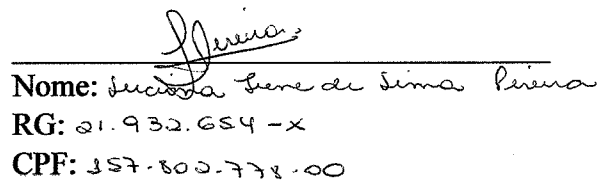 Pereira
Nome: Luciana Irene de Lima Pereira
RG: 21.932.654-X
CPF: 157.802.778-00